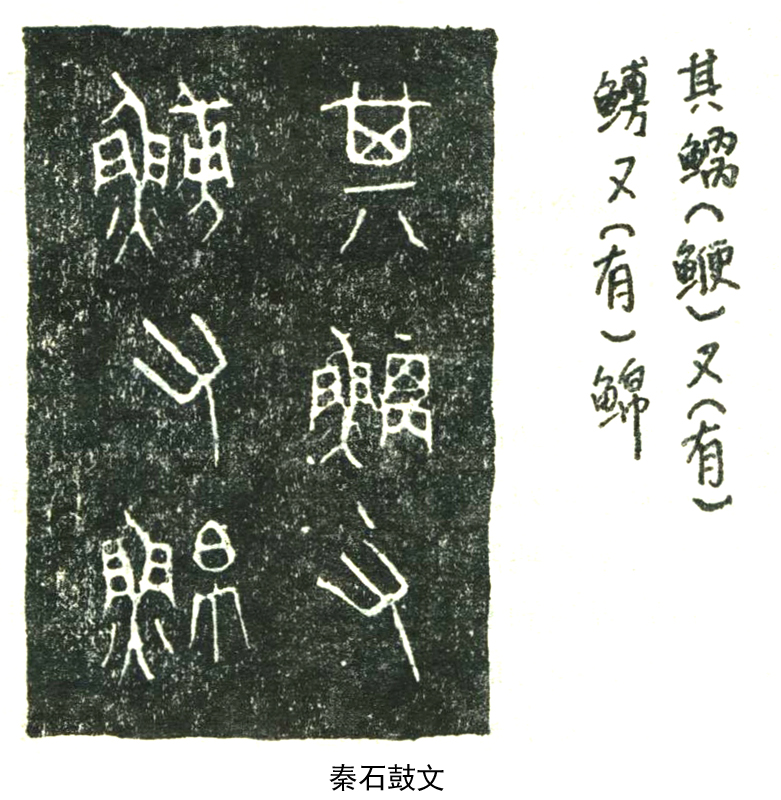 其(鯾)又(有)
鰟又(有)
其又
鰟又
秦石鼓文